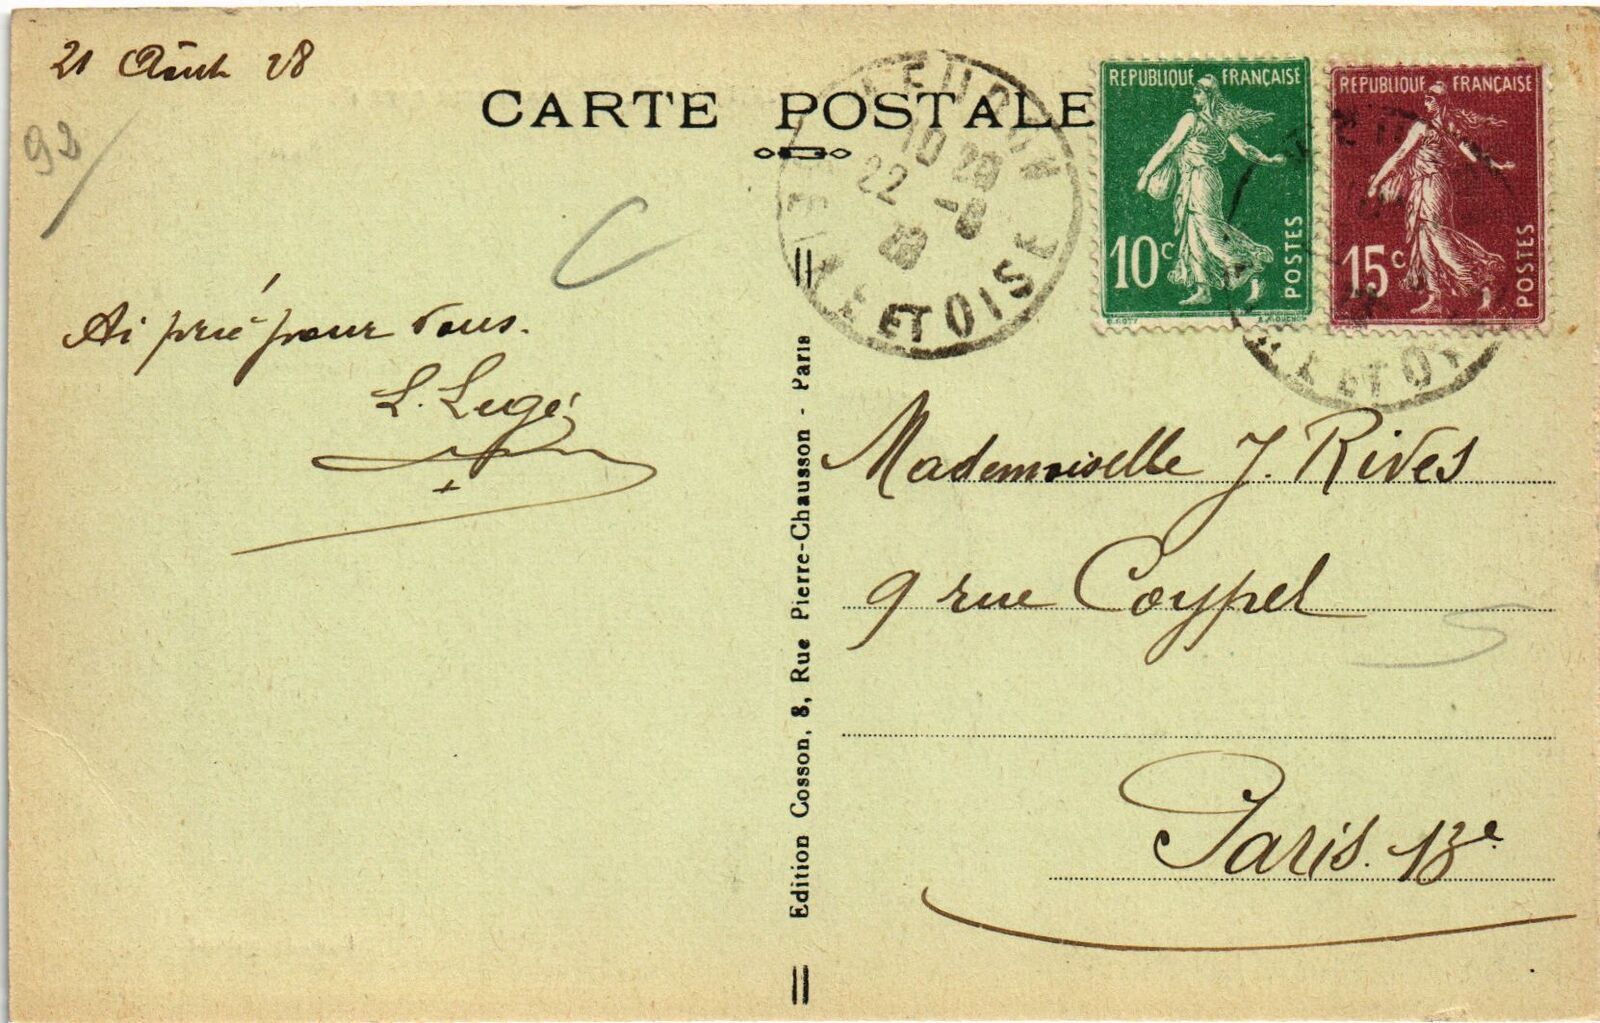 21 Août 28
98
CARTE POSTALE
10 28
22 -8
28
ET OISE
REPUBLIQUE FRANÇAISE
10c
POSTES
REPUBLIQUE FRANÇAISE
15c
POSTES
ET OI
C
Ai prié pour vous.
L. Legé
Edition Cosson, 8, Rue Pierre-Chausson - Paris
Mademoiselle J. Rives
9 rue Coypel
Paris. 13e.